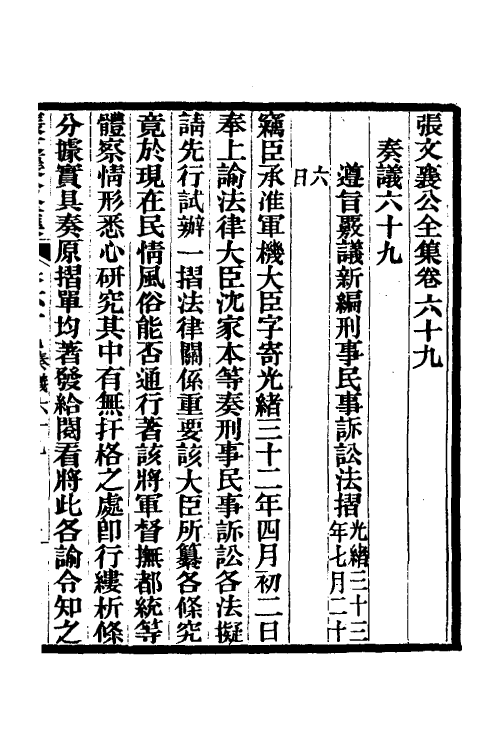 張文襄公全集卷六十九
奏議六十九
遵旨覈議新編刑事民事訴訟法摺光緒三十三年七月二十
六日
竊臣承准軍機大臣字寄光緒三十二年四月初二日
奉上諭法律大臣沈家本等奏刑事民事訴訟各法擬
請先行試辦一摺法律關係重要該大臣所纂各條究
竟於現在民情風俗能否通行著該將軍督撫都統等
體察情形悉心研究其中有無扞格之處卽行縷析條
分據實具奏原摺單均著發給閱看將此各諭令知之
奏議六十九